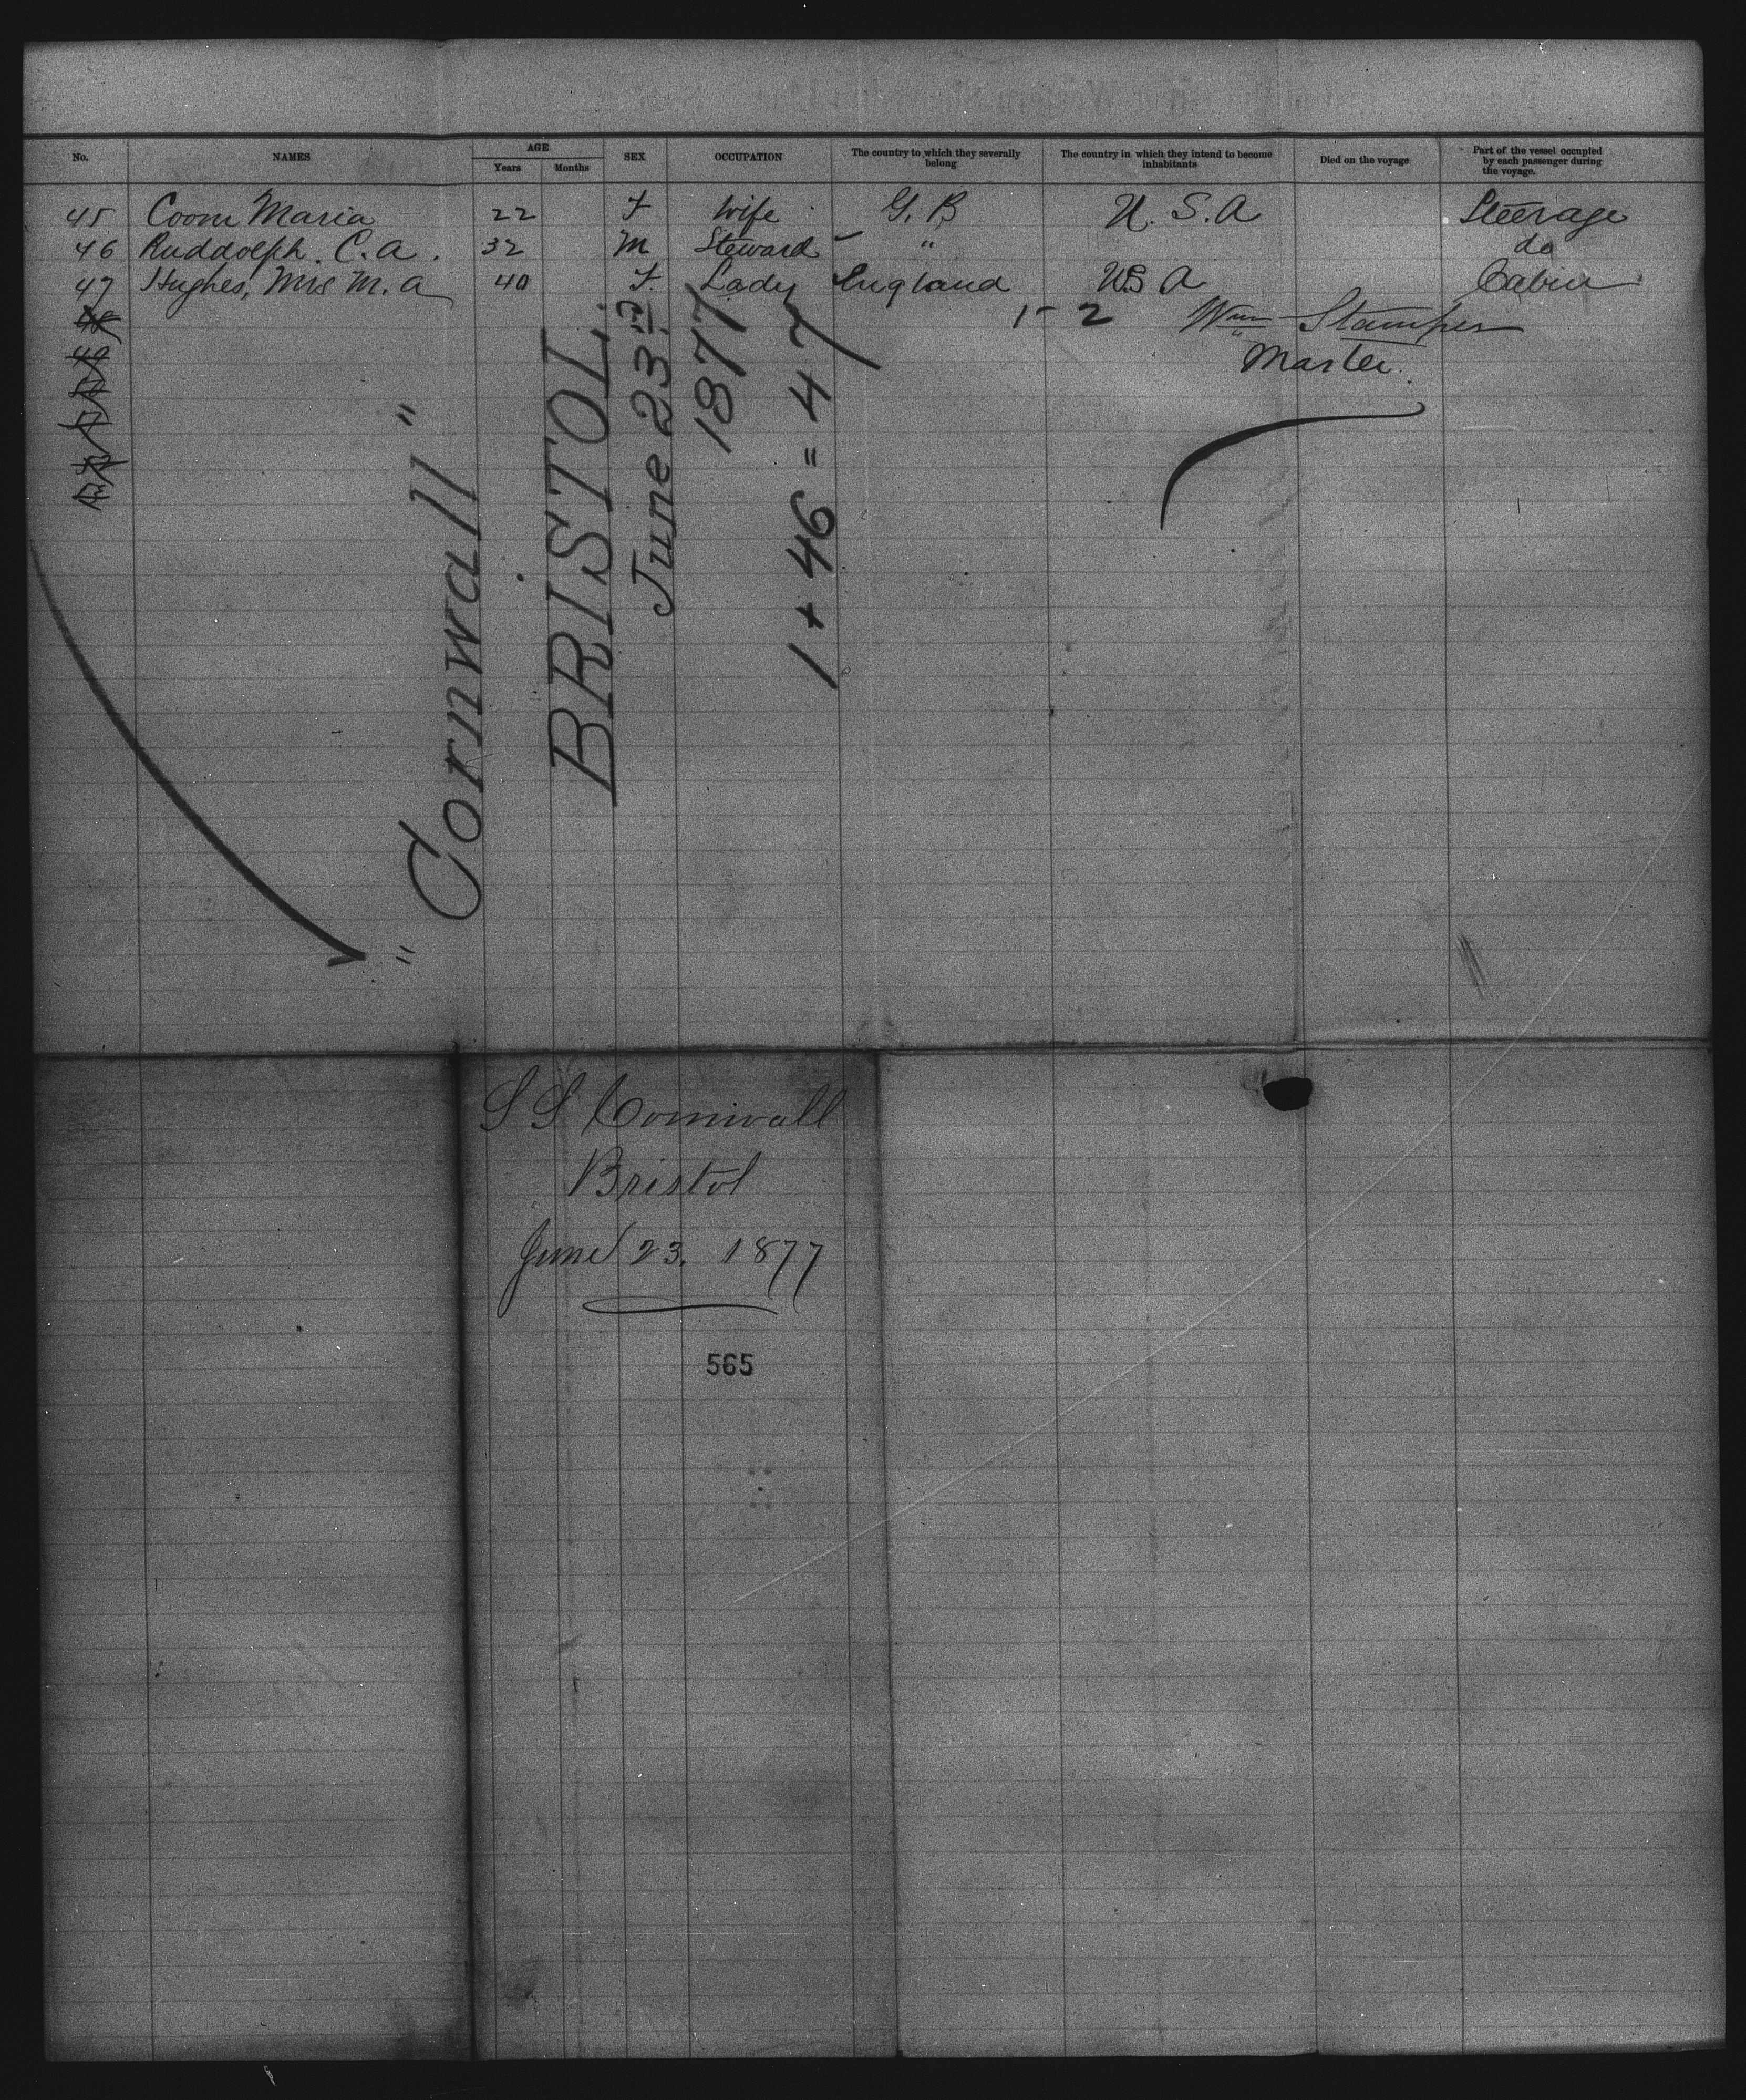 No. NAMES AGE Years Months SEX OCCUPATION The country to which they severally belong The country in which they intend to become inhabitants Died on the voyage Part of the vessel occupied by each passenger during the voyage.
45 Coom Maria 22 F Wife G. B U. S. A Steerage
46 Ruddolph. C. A. 32 M Steward " do
47 Hughes, Mrs M. A 40 F. Lady England U.S A Cabin
1 - 2 Wm Stamper
Master.
48
49
" Cornwall "
BRISTOL.
June 23rd
1877
1 + 46 = 47
S S Cornwall
Bristol
June 23. 1877
565